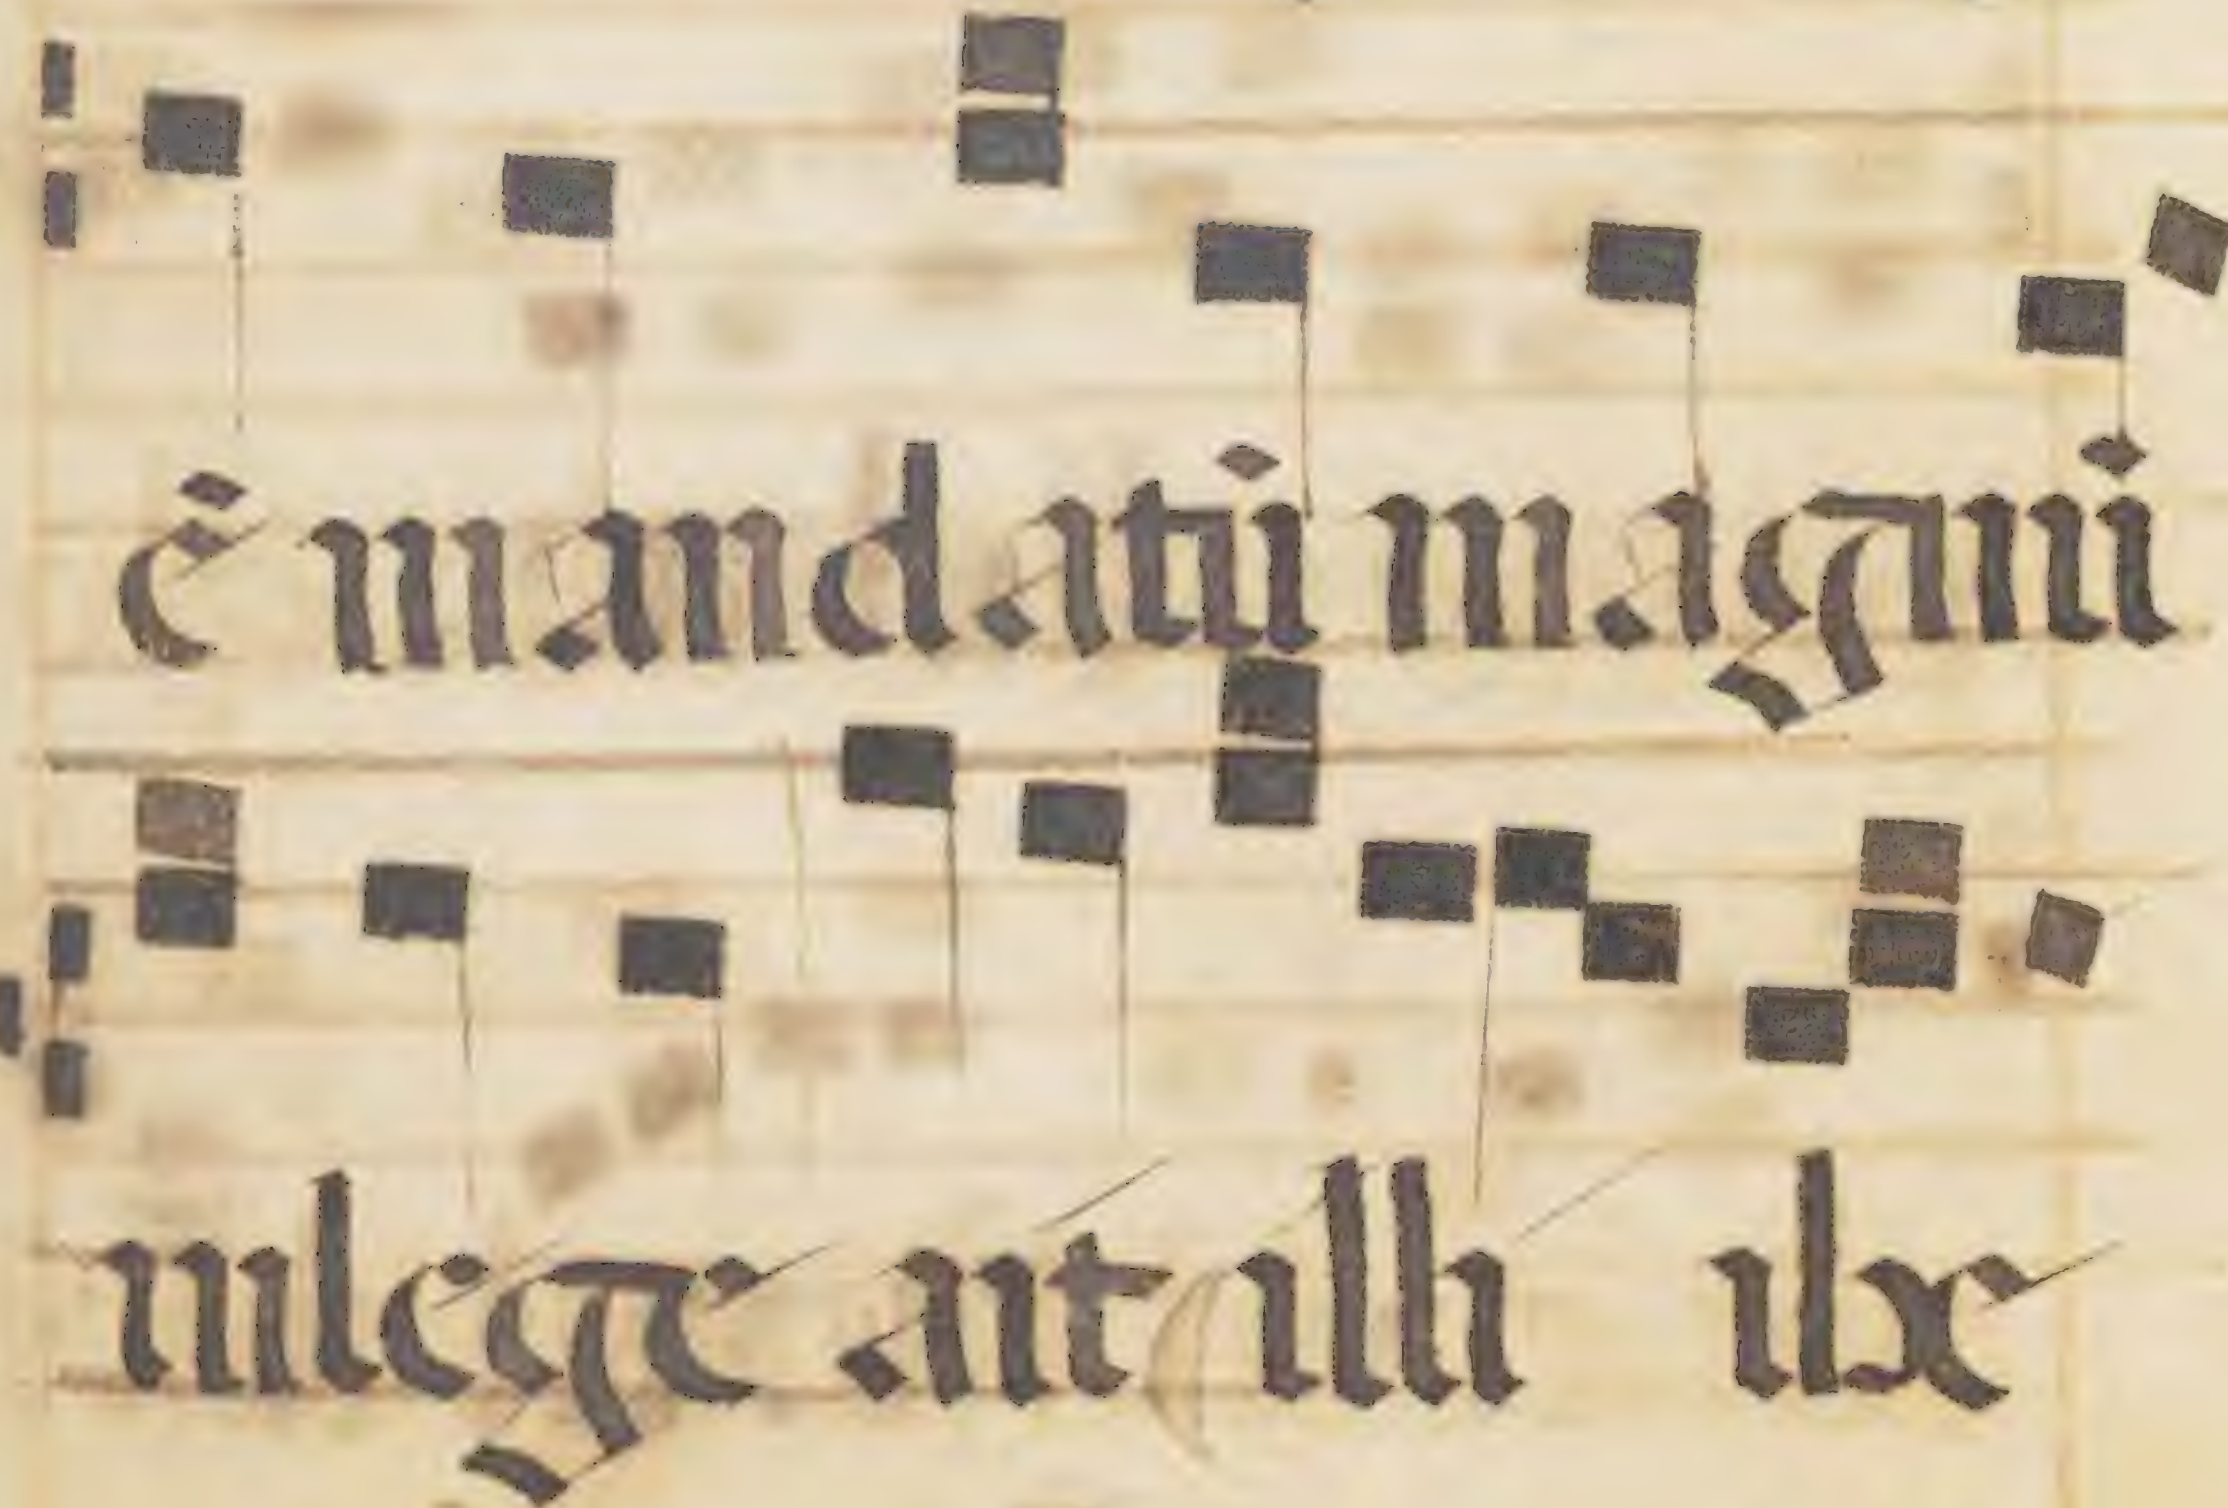 ē mandatū magnū
in lege ait illi ihc